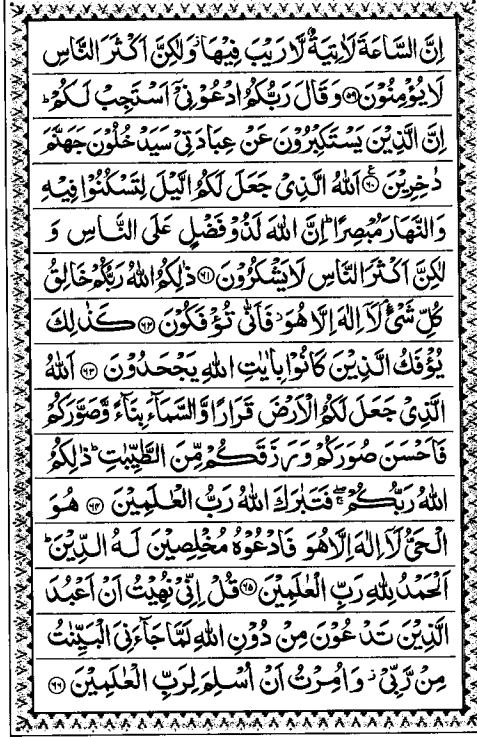 اِنَّ السَّاعَةَ لَاٰتِيَةٌ لَّا رَيْبَ فِيْهَا وَلٰكِنَّ اَكْثَرَ النَّاسِ
لَا يُؤْمِنُوْنَ ﴿۵۹﴾ وَقَالَ رَبُّكُمُ ادْعُوْنِيْٓ اَسْتَجِبْ لَكُمْ ؕ
اِنَّ الَّذِيْنَ يَسْتَكْبِرُوْنَ عَنْ عِبَادَتِيْ سَيَدْخُلُوْنَ جَهَنَّمَ
دٰخِرِيْنَ ﴿۶۰﴾ ع اَللّٰهُ الَّذِيْ جَعَلَ لَكُمُ الَّيْلَ لِتَسْكُنُوْا فِيْهِ
وَالنَّهَارَ مُبْصِرًا ؕ اِنَّ اللّٰهَ لَذُوْ فَضْلٍ عَلَى النَّاسِ وَ
لٰكِنَّ اَكْثَرَ النَّاسِ لَا يَشْكُرُوْنَ ﴿۶۱﴾ ذٰلِكُمُ اللّٰهُ رَبُّكُمْ خَالِقُ
كُلِّ شَيْءٍ ۘ لَآ اِلٰهَ اِلَّا هُوَ ۫ فَاَنّٰى تُؤْفَكُوْنَ ﴿۶۲﴾ كَذٰلِكَ
يُؤْفَكُ الَّذِيْنَ كَانُوْا بِاٰيٰتِ اللّٰهِ يَجْحَدُوْنَ ﴿۶۳﴾ اَللّٰهُ
الَّذِيْ جَعَلَ لَكُمُ الْاَرْضَ قَرَارًا وَّالسَّمَآءَ بِنَآءً وَّصَوَّرَكُمْ
فَاَحْسَنَ صُوَرَكُمْ وَرَزَقَكُمْ مِّنَ الطَّيِّبٰتِ ؕ ذٰلِكُمُ
اللّٰهُ رَبُّكُمْ ۖۚ فَتَبٰرَكَ اللّٰهُ رَبُّ الْعٰلَمِيْنَ ﴿۶۴﴾ هُوَ
الْحَيُّ لَآ اِلٰهَ اِلَّا هُوَ فَادْعُوْهُ مُخْلِصِيْنَ لَهُ الدِّيْنَ ؕ
اَلْحَمْدُ لِلّٰهِ رَبِّ الْعٰلَمِيْنَ ﴿۶۵﴾ قُلْ اِنِّيْ نُهِيْتُ اَنْ اَعْبُدَ
الَّذِيْنَ تَدْعُوْنَ مِنْ دُوْنِ اللّٰهِ لَمَّا جَآءَنِيَ الْبَيِّنٰتُ
مِنْ رَّبِّيْ ؗ وَاُمِرْتُ اَنْ اُسْلِمَ لِرَبِّ الْعٰلَمِيْنَ ﴿۶۶﴾